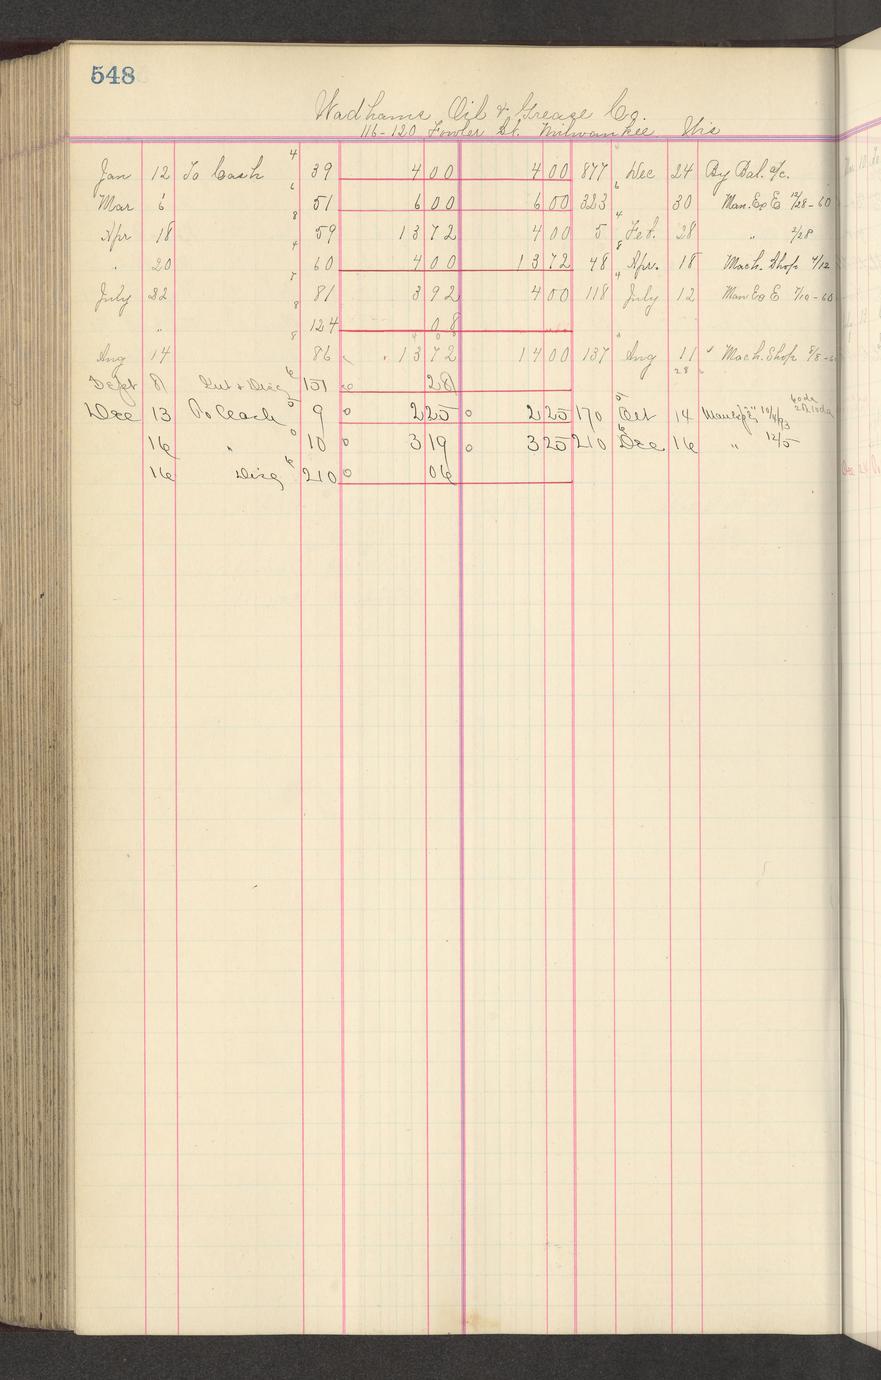 548
Wadhams Oil & Grease Co.
116-120 Fowler St. Milwaukee Wis
Jan 12 To Cash 4 39 4 00 4 00 877 Dec 24 By Bal. a/c.
Mar 6 6 51 6 00 6 00 323 6 30 " Man. Ex E 12/28-60
Apr 18 8 59 13 72 4 00 5 4 Feb. 28 " 2/28
" 20 4 60 4 00 13 72 48 8 Apr. 18 Mach. Shop 4/12
July 22 81 3 92 4 00 118 4 July 12 Man Ex E 7/10-60
" 8 124 08
Aug 14 8 86 13 72 14 00 137 Aug 11 Mach. Shop 8/8
28
Sept 8 Int & Disc 6 151 28
Dec 13 To Cash 5 9 2 25 2 25 170 5 Oct 14
16 " 0 10 3 19 3 25 210 6 Dec 16 " 12/5
16 Disc 6 210 06